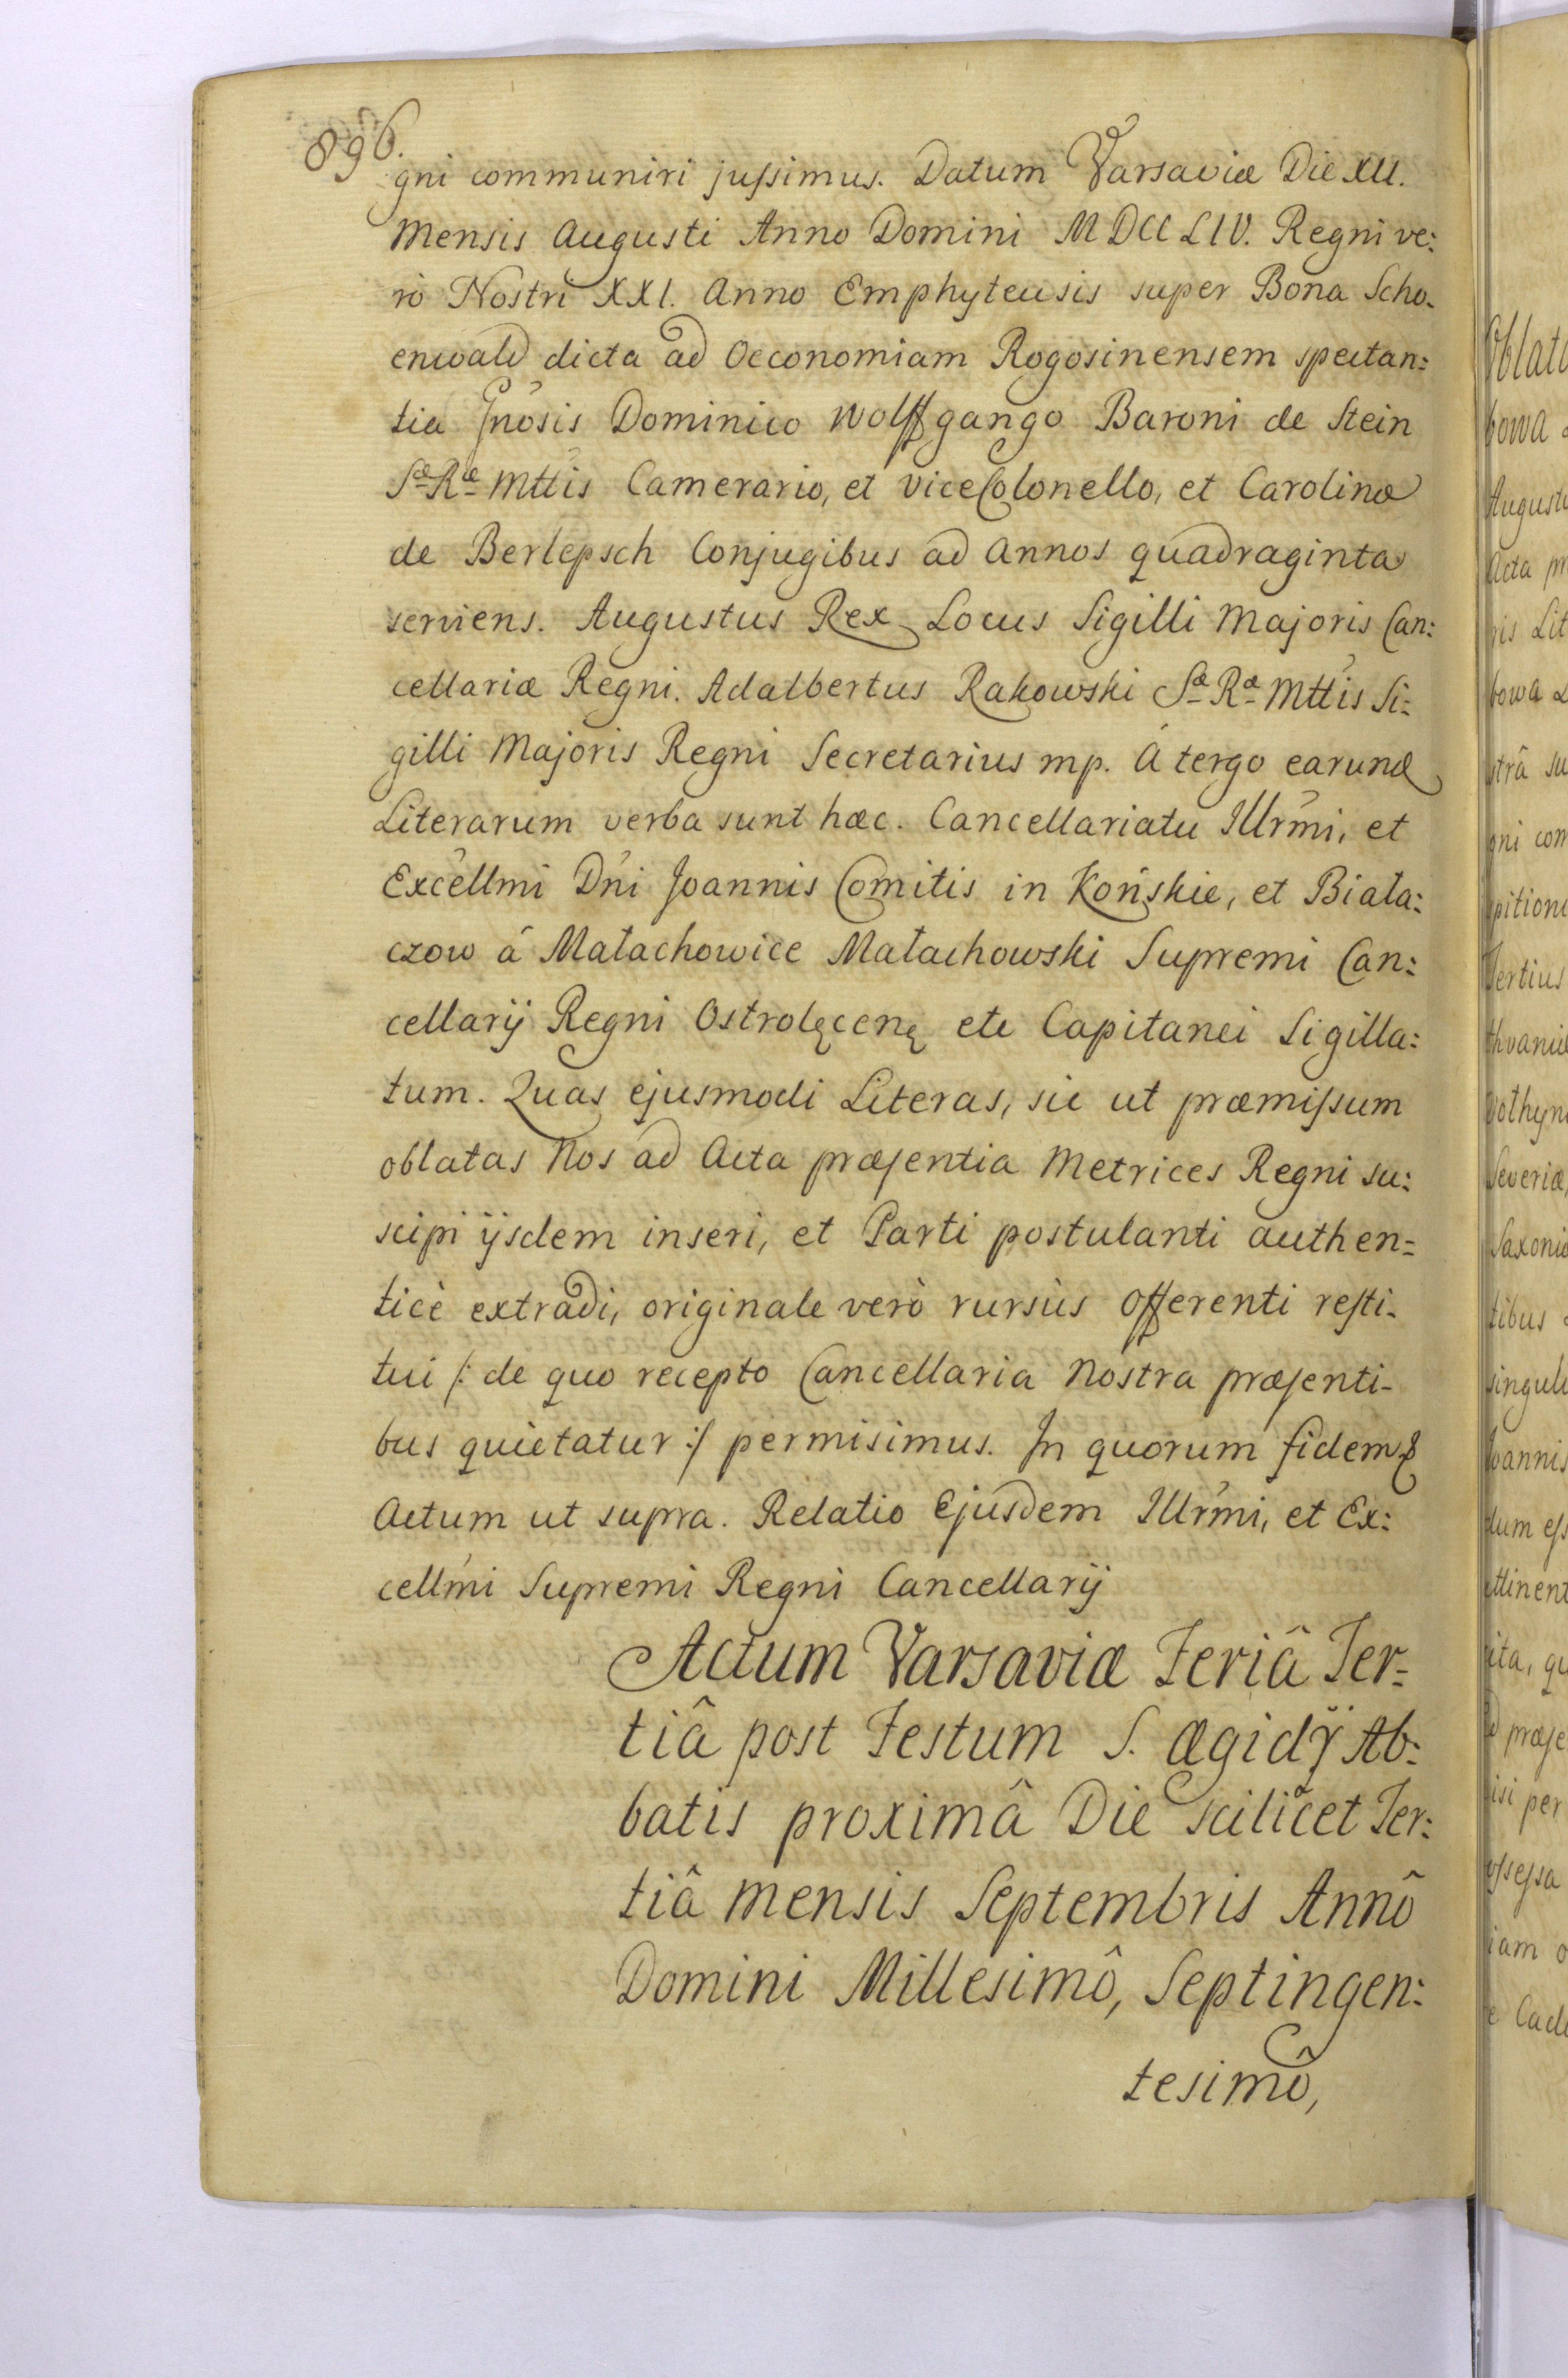 896.
gni communiri jussimus. Datum Varsaviæ Die XII.
Mensis Augusti Anno Domini MDCCLIV. Regni ve:
rò Nostri XXI. Anno Emphyteusis super Bona Scho-
enwald dicta ad Oeconomiam Rogosinensem spectan:
tia Gnosis Dominico Wolffgango Baroni de Stein
Sæ Ræ Mttis Camerario, et Vice Colonello, et Carolinæ
de Berlepsch Conjugibus ad Annos quadraginta
serviens. Augustus Rex Locus Sigilli Majoris Can:
cellariæ Regni. Adalbertus Rakowski Sæ Ræ Mttis Si:
gilli Majoris Regni Secretarius mp. A tergo earund
Literarum verba sunt hæc. Cancellariatu Illrmi, et
Excellmi Dni Joannis Comitis in Końskie, et Biała:
czow á Małachowice Małachowski Supremi Can:
cellarij Regni Ostrolęcenę etc Capitanei Sigilla:
tum. Quas ejusmodi Literas, sic ut præmissum
oblatas Nos ad Acta præsentia Metrices Regni su:
scipi ijsdem inseri, et Parti postulanti authen=
ticè extradi, originale verò rursùs Offerenti resti-
tui /: de quo recepto Cancellaria Nostra præsenti-
bus quietatur :/ permisimus. In quorum fidem
Actum ut supra. Relatio Ejusdem Illrmi, et Ex:
cellmi Supremi Regni Cancellarij
Actum Varsaviæ Feriâ Ter=
tiâ post Festum S. Ægidÿ Ab:
batis proximâ Die scilicet Ter:
tiâ Mensis Septembris Annô
Domini Millesimô, Septingen:
tesimô,